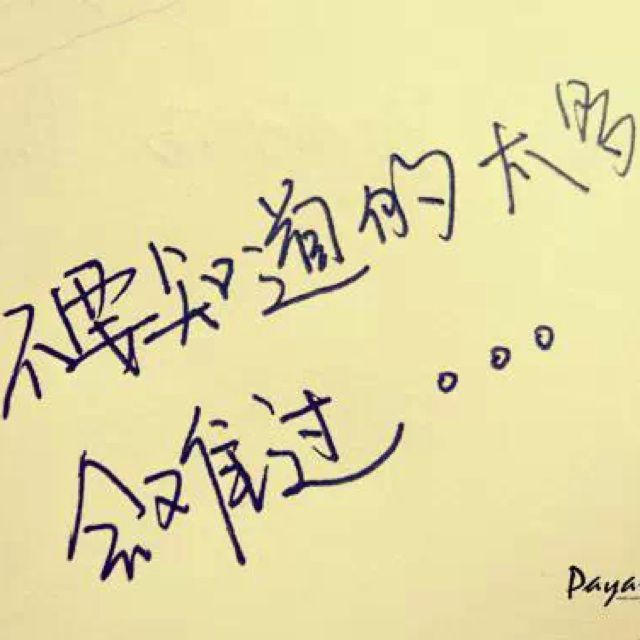 不要知道的太
会难过。。。
Paya